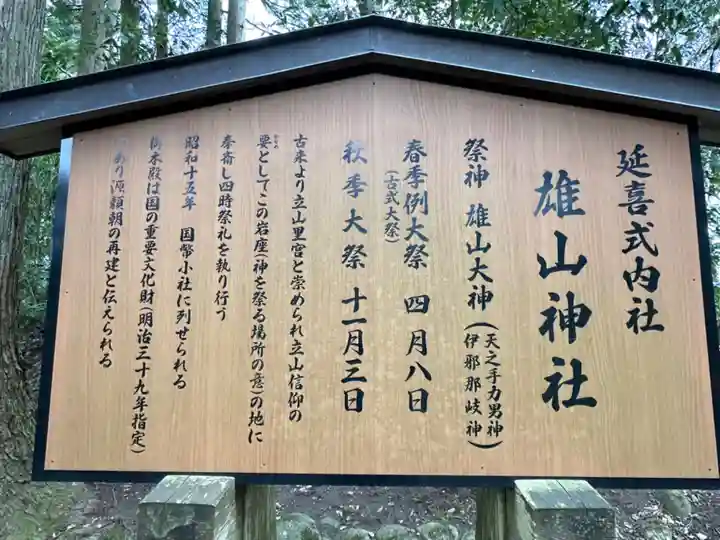 延喜式内社
雄山神社
祭神 雄山大神(天之手力男神
伊邪那岐神)
春季例大祭 四月八日
(古式大祭)
秋季大祭 十一月三日
古来より立山里宮と崇められ立山信仰の
要としてこの岩座(神を祭る場所の意)の地に
かなめ
奉斎し四時祭礼を執り行う
昭和十五年 国幣小社に列せられる
本殿は国の重要文化財(明治三十九年指定)
あり源頼朝の再建と伝えられる